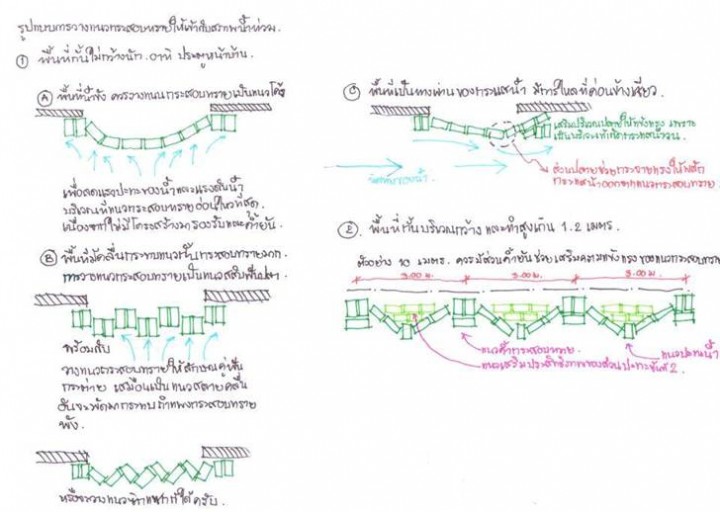 รูปแบบการวางแนวกระสอบทรายให้เข้ากับสภาพน้ำท่วม.
① พื้นที่กั้นไม่กว้างนัก. อาทิ ประตูหน้าบ้าน.
Ⓐ พื้นที่น้ำขัง ควรวางแนวกระสอบทรายเป็นแนวโค้ง
เพื่อลดแรงปะทะของน้ำและแรงดันน้ำ
บริเวณที่แนวกระสอบทรายอ่อนไหวที่สุด.
เนื่องจากไม่มีโครงสร้างมารองรับและค้ำยัน.
Ⓑ พื้นที่มีคลื่นกระทบแนวกระสอบทรายมาก.
การวางแนวกระสอบทรายเป็นแนวสลับฟันปลา.
พร้อมกับ
วางแนวกระสอบทรายให้
เสมือนเป็นแนวสลายคลื่น
กำแพงกระสอบทราย
พัง.
หรือวางแนวก็ได้ครับ.
Ⓒ พื้นที่เป็นทางผ่านของกระแสน้ำ มีการไหลที่ค่อนข้างเชี่ยว.
เสริมบริเวณปลายให้แข็งแรง เพราะ
เป็นบริเวณที่เกิดกระแสน้ำวน.
ส่วนปลายช่วยกระจายแรงให้ผลัก
กระแสน้ำออกจากแนวกระสอบทราย.
② พื้นที่กั้นบริเวณกว้าง และทำสูงเกิน 1.2 เมตร.
ตัวอย่าง 10 เมตร. ควรมีส่วนค้ำยันช่วยเสริมความแข็งแรงของแนวกระสอบทราย
3.00 ม. 3.00 ม. 3.00 ม.
แนวค้ำกระสอบทราย. แนวปะทะน้ำ
แนวเสริมประสิทธิภาพของส่วนปะทะชั้นที่ 2.